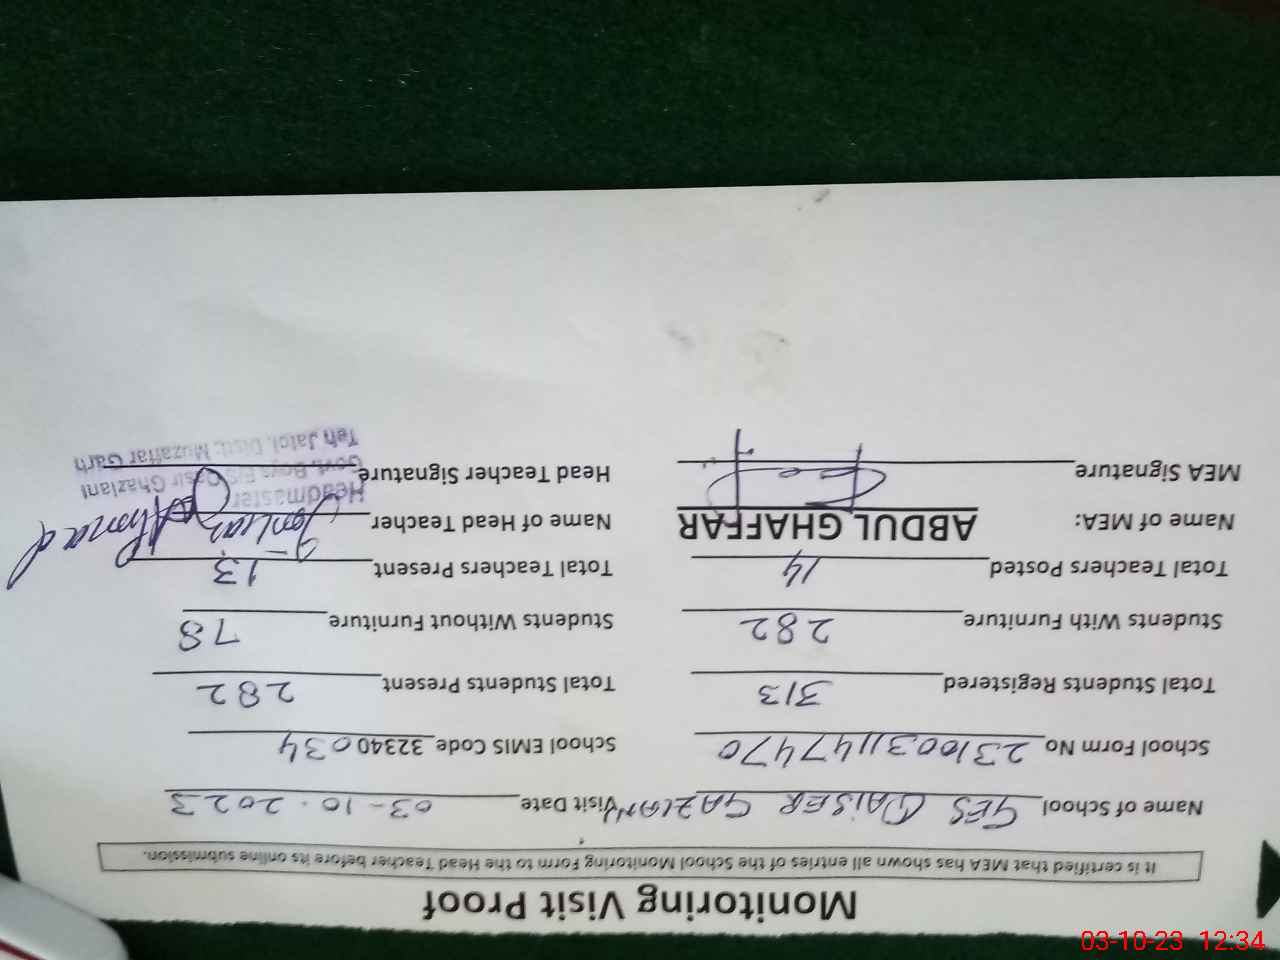 Monitoring Visit Proof
It is certified that MEA has shown all entries of the School Monitoring Form to the Head Teacher before its online submission.
Name of School GES QAISER GAZLANI Visit Date 03-10-2023
School Form No 23100311147470 School EMIS Code 32340034
Total Students Registered 313 Total Students Present 282
Students With Furniture 282 Students Without Furniture 78
Total Teachers Posted 14 Total Teachers Present 13
Name of MEA: ABDUL GHAFFAR Name of Head Teacher Ahmad
MEA Signature Head Teacher Signature
Headmaster
Govt. Boys Ghazlani
Teh Jatoi, Distt: Muzaffar Garh
03-10-23 12:34